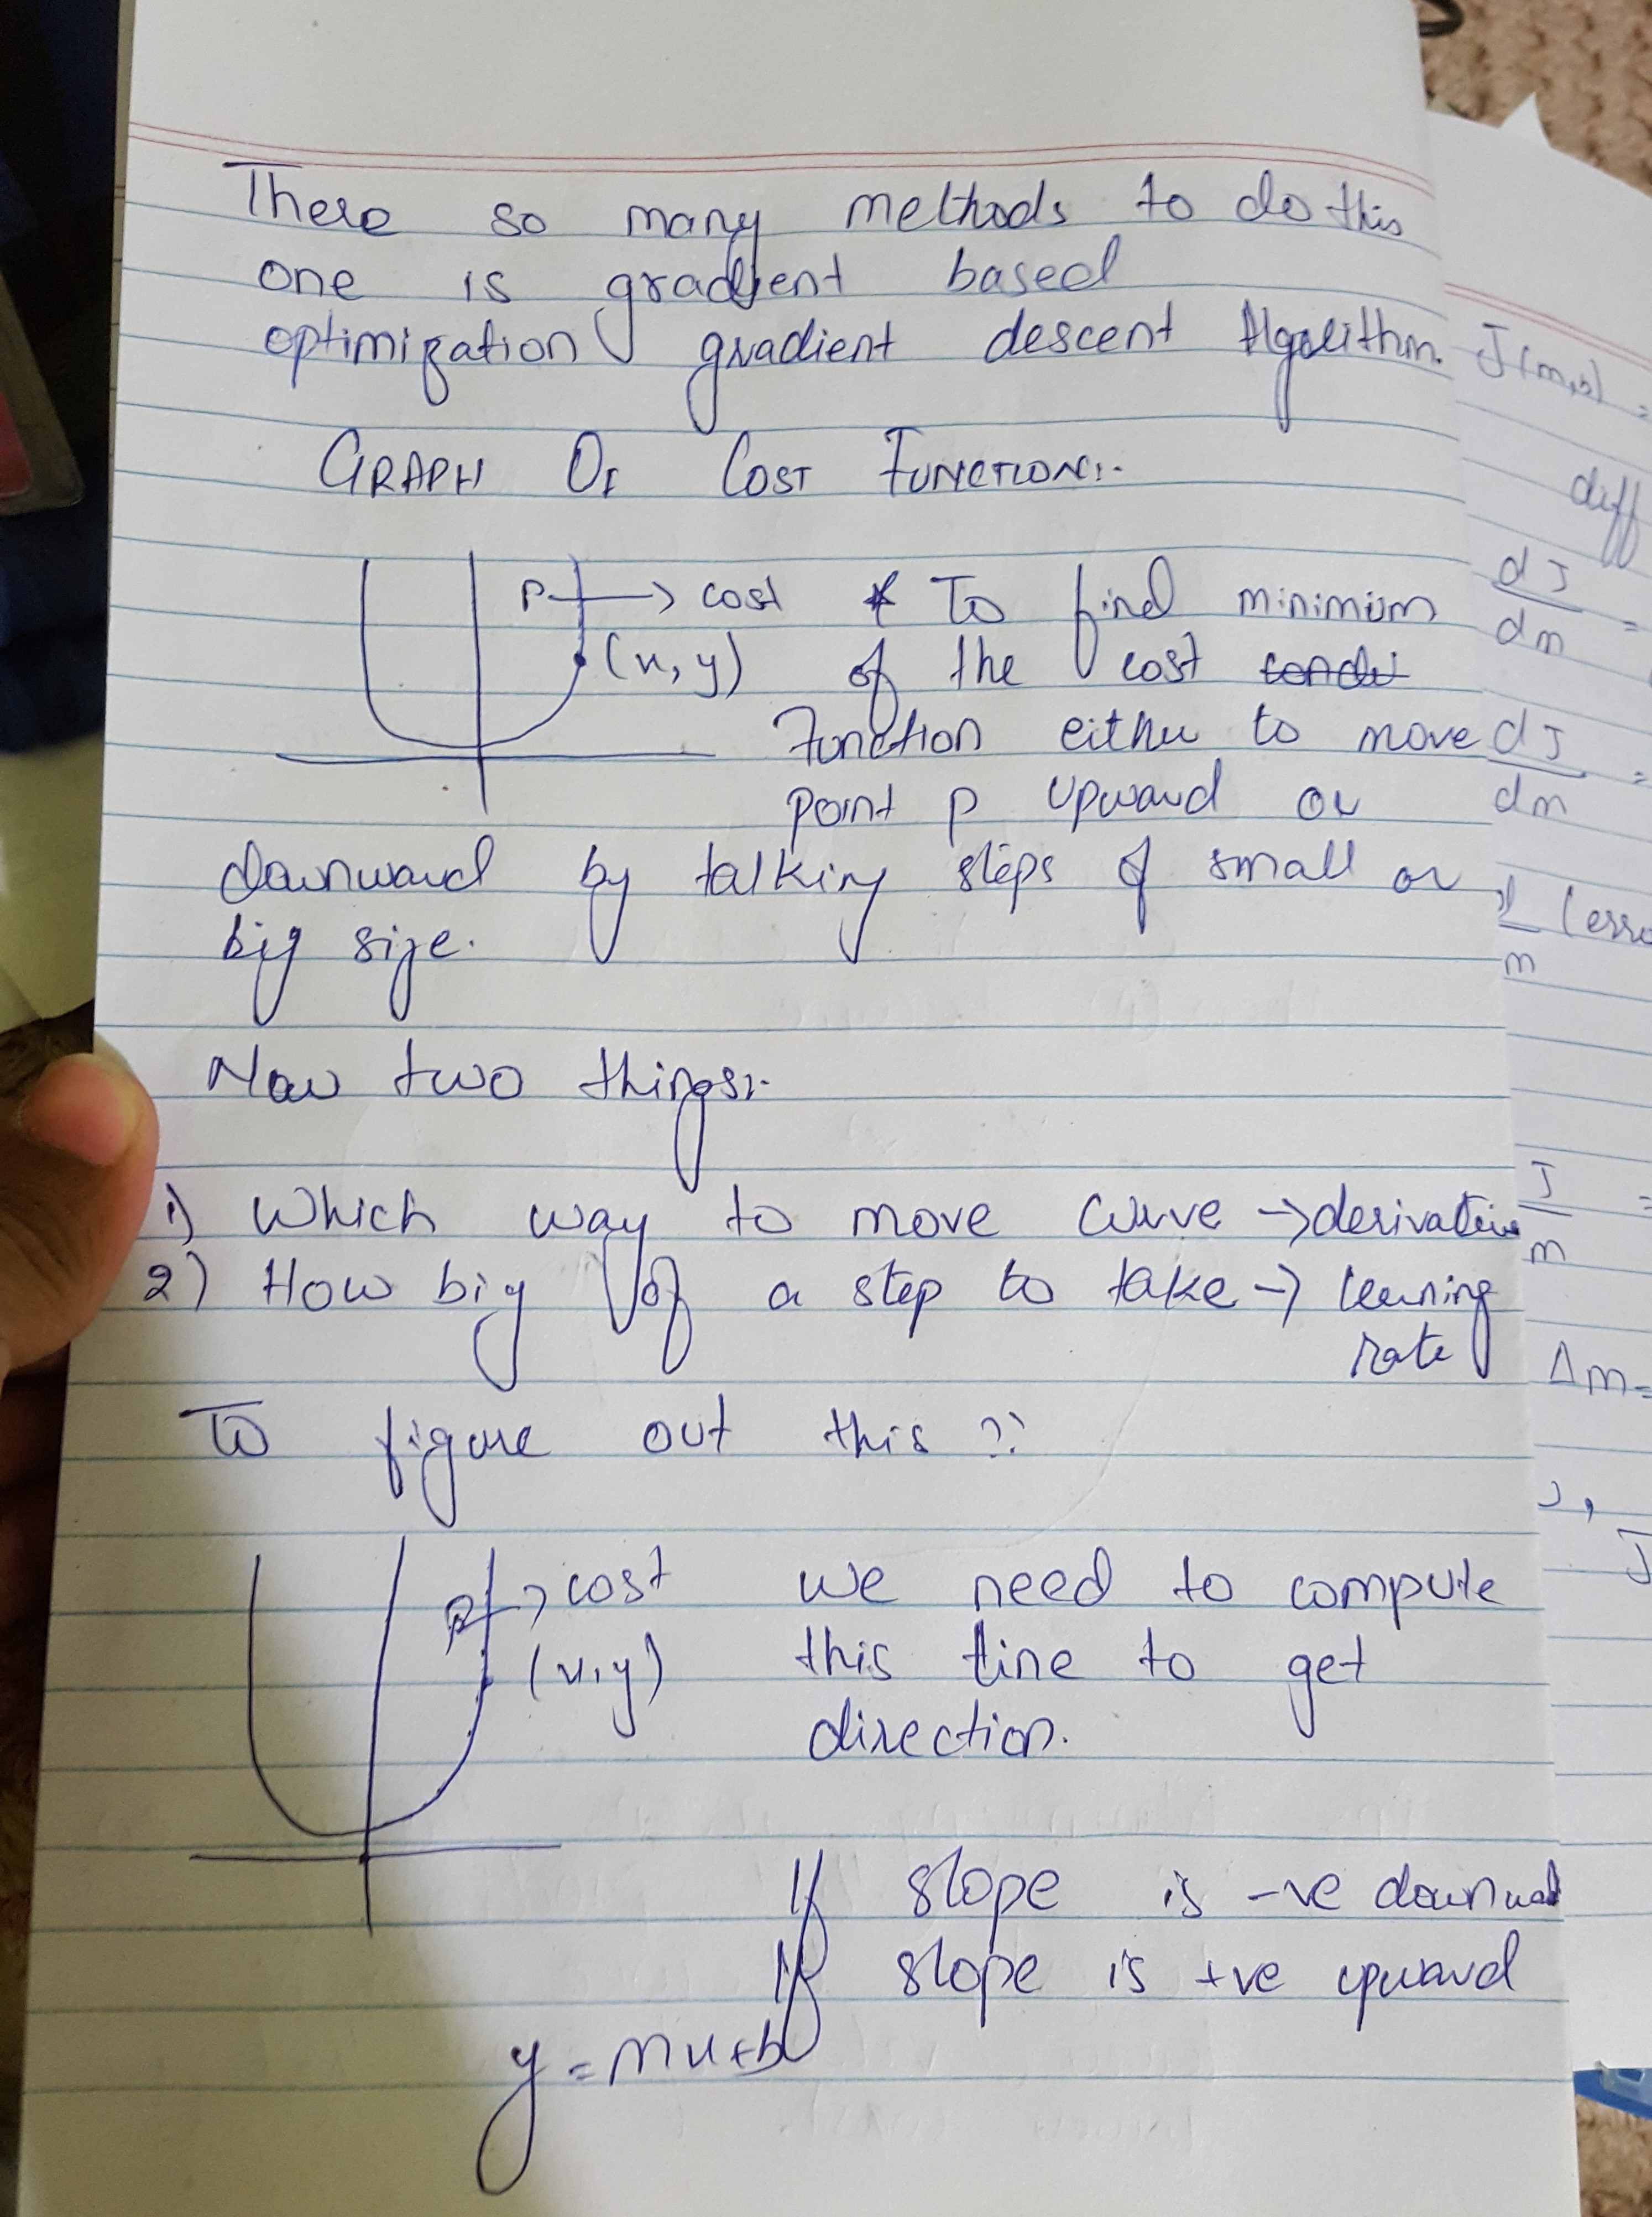 There so many methods to do this
one is gradient based
optimization gradient descent Algolithm.
GRAPH OF COST FUNCTION:-
P → cost
(x, y)
* To find minimum
of the cost
Function either to move
point p upward or
downward by talking steps of small or
big size.
Now two things:-
1) Which way to move curve → derivative
2) How big of a step to take → learning
rate
To figure out this ??
P → cost
(x, y)
we need to compute
this line to get
direction.
If slope is -ve downward
If slope is +ve upward
y = mx+b
J(m,b) =
diff
dJ
dm =
dJ
dm =
(erro
m
J =
m
Δm=
J